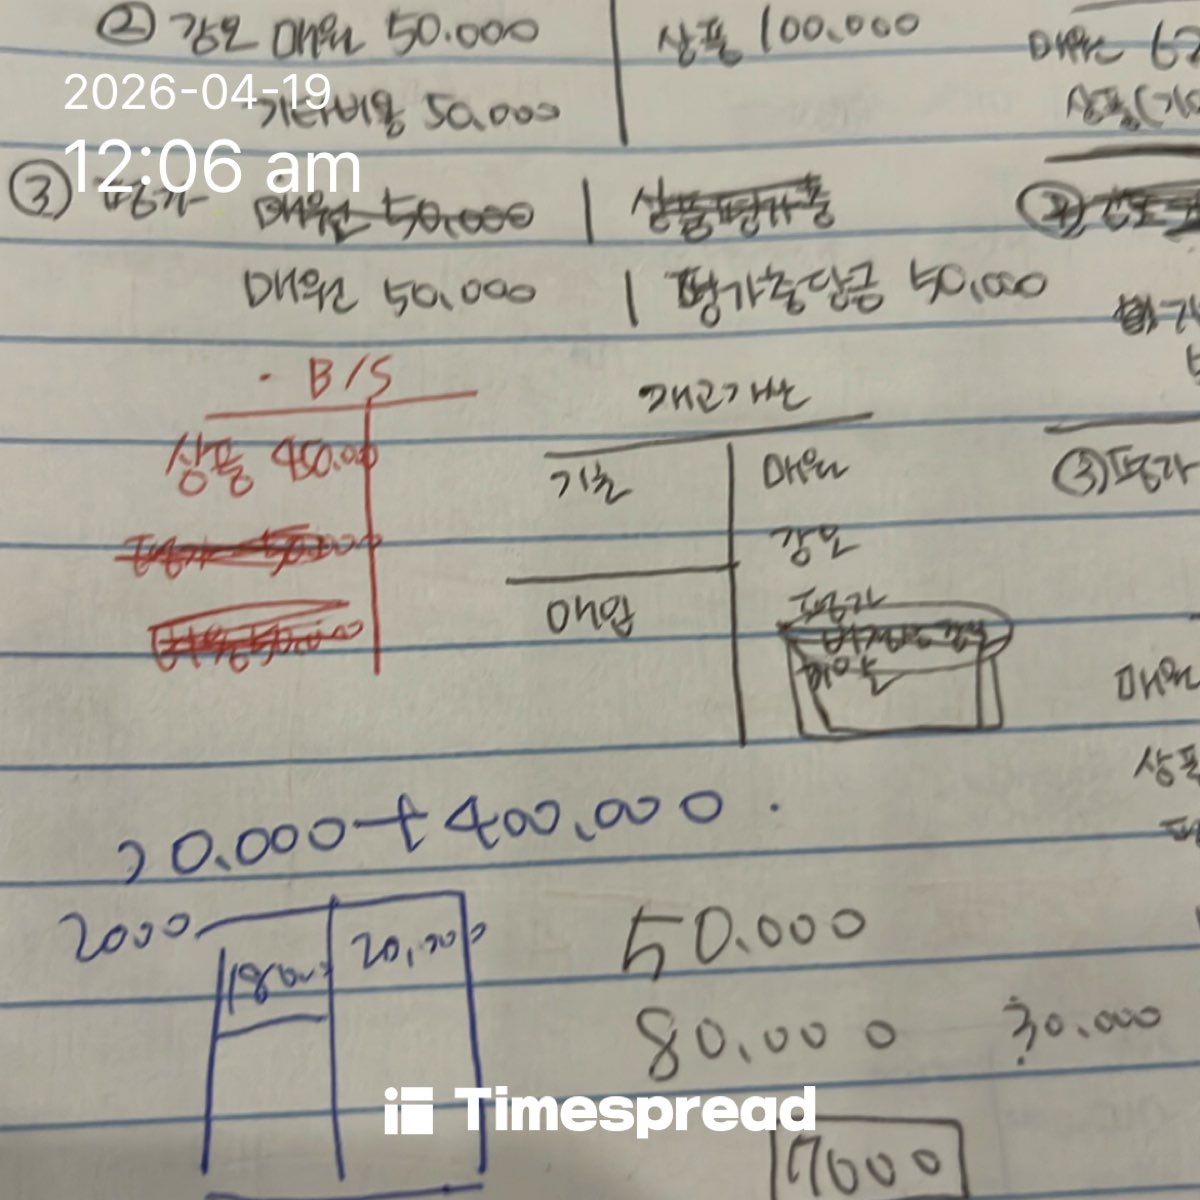 ② 감모 매원 50.000 | 상품 100.000
매원
2026-04-19
기타비용 50,000
상품(기
12:06 am
③ 평가 매원 50,000 | 상품평가충
매원 50,000 | 평가충당금 50,000
B/S
상품 450.00
재고자산
기초
매원
감모
평가
매입
③평가
매원
상품
20.000+400,000
2000
20,000
50.000
80.000
30.000
Timespread
17600